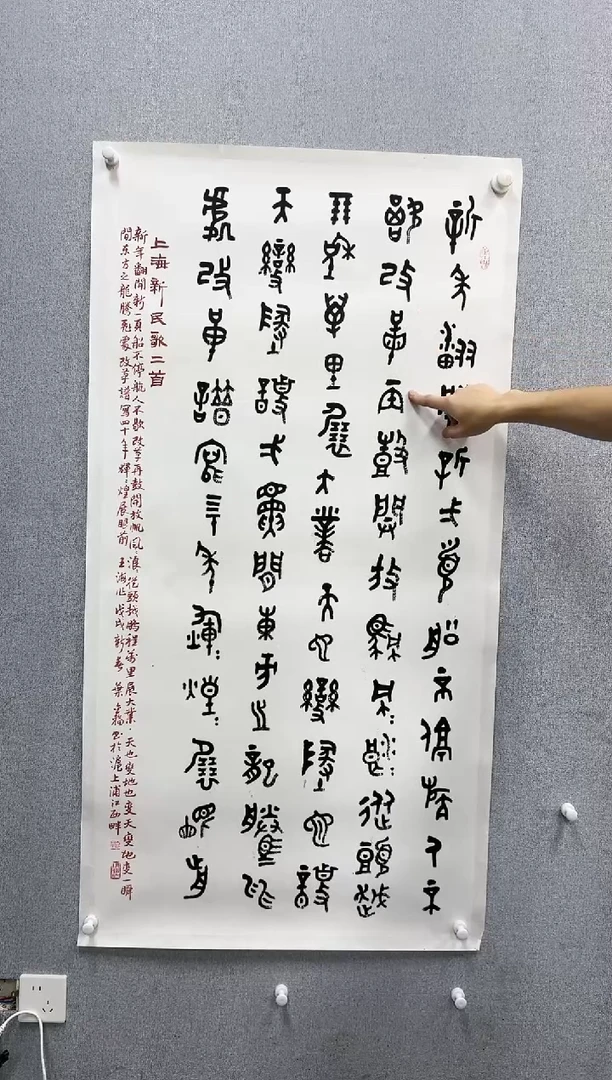 新年翻開新一頁船不停航人不
歇改革再鼓開放帆風浪從頭越
鵬程萬里展大業天也變地也變
天變地變一瞬間東方之龍騰飛
處改革譜寫四十年輝煌展眼前
上海新民歌二首
新年翻開新一頁船不停航人不歇改革再鼓開放帆風浪從頭越鵬程萬里展大業天也變地也變天變地變一瞬
間东方之龍騰飛處改革譜寫四十年輝煌展眼前 王海作 戊戌新春 葉書於滬上浦江西畔